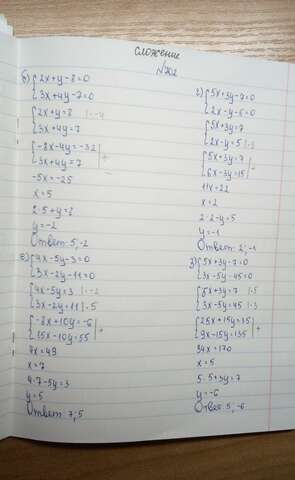 Сложение
№702
б) {2x+y-8=0
{3x+4y-7=0
{2x+y=8 |·-4
{3x+4y=7
{-8x-4y=-32 | +
{3x+4y=7
-5x=-25
x=5
2·5+y=8
y=-2
Ответ: 5, -2
г) {5x+3y-7=0
{2x-y-5=0
{5x+3y=7
{2x-y=5 |·3
{5x+3y=7 | +
{6x-3y=15
11x=22
x=2
2·2-y=5
y=-1
Ответ: 2; -1
е) {4x-5y-3=0
{3x-2y-11=0
{4x-5y=3 |·-2
{3x-2y=11 |·5
{-8x+10y=-6 | +
{15x-10y=55
7x=49
x=7
4·7-5y=3
y=5
Ответ: 7, 5
з) {5x+3y-7=0
{3x-5y-45=0
{5x+3y=7 |·5
{3x-5y=45 |·3
{25x+15y=35 | +
{9x-15y=135
34x=170
x=5
5·5+3y=7
y=-6
Ответ: 5, -6